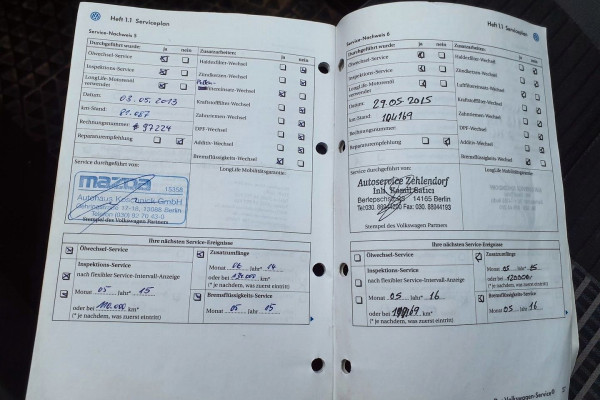 Heft 1.1 Serviceplan
Service-Nachweis 5
Durchgeführt wurde: ja nein Zusatzarbeiten: ja nein
Ölwechsel-Service
Haldexfilter-Wechsel
Inspektions-Service
Zündkerzen-Wechsel
LongLife-Motorenöl verwendet
Datum: 03.05.2013
Kraftstofffilter-Wechsel
km-Stand:
Zahnriemen-Wechsel
Rechnungsnummer: 97224
DPF-Wechsel
Reparaturempfehlung
Additiv-Wechsel
Bremsflüssigkeits-Wechsel
Service durchgeführt von:
LongLife Mobilitätsgarantie:
mazda
Stempel des Volkswagen Partners
Ihre nächsten Service-Ereignisse
Ölwechsel-Service
Zusatzumfänge
Inspektions-Service
nach flexibler Service-Intervall-Anzeige
Monat 05 Jahr* 15
oder bei 110.000 km*
(* je nachdem, was zuerst eintritt)
Monat 06 Jahr* 14
oder bei km*
(* je nachdem, was zuerst eintritt)
Bremsflüssigkeits-Service
Monat 05 Jahr 15
Heft 1.1 Serviceplan
Service-Nachweis 6
Durchgeführt wurde: ja nein Zusatzarbeiten: ja nein
Ölwechsel-Service
Haldexfilter-Wechsel
Inspektions-Service
Zündkerzen-Wechsel
LongLife-Motorenöl verwendet
Luftfiltereinsatz-Wechsel
Datum: 29.05.2015
Kraftstofffilter-Wechsel
km-Stand: 104169
Zahnriemen-Wechsel
Rechnungsnummer:
DPF-Wechsel
Reparaturempfehlung
Additiv-Wechsel
Bremsflüssigkeits-Wechsel
Service durchgeführt von:
LongLife Mobilitätsgarantie:
Autoservice Zehlendorf
14165 Berlin
Stempel des Volkswagen Partners
Ihre nächsten Service-Ereignisse
Ölwechsel-Service
Zusatzumfänge
Inspektions-Service
nach flexibler Service-Intervall-Anzeige
Monat 05 Jahr* 16
oder bei km*
(* je nachdem, was zuerst eintritt)
oder bei km*
(* je nachdem, was zuerst eintritt)
Bremsflüssigkeits-Service
Monat 05 Jahr 16